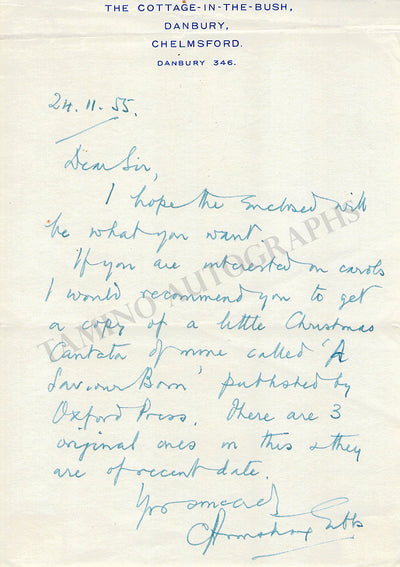 THE COTTAGE-IN-THE-BUSH,
DANBURY,
CHELMSFORD.
DANBURY 346.
24.11.55.
Dear Sir,
I hope the enclosed will
be what you want.
If you are interested in carols
I would recommend you to get
a copy of a little Christmas
Cantata of mine called 'A
Saviour Born' published by
Oxford Press. There are 3
original ones in this & they
are of recent date.
Yrs sincerely
C Armstrong Gibbs
TAMINO AUTOGRAPHS